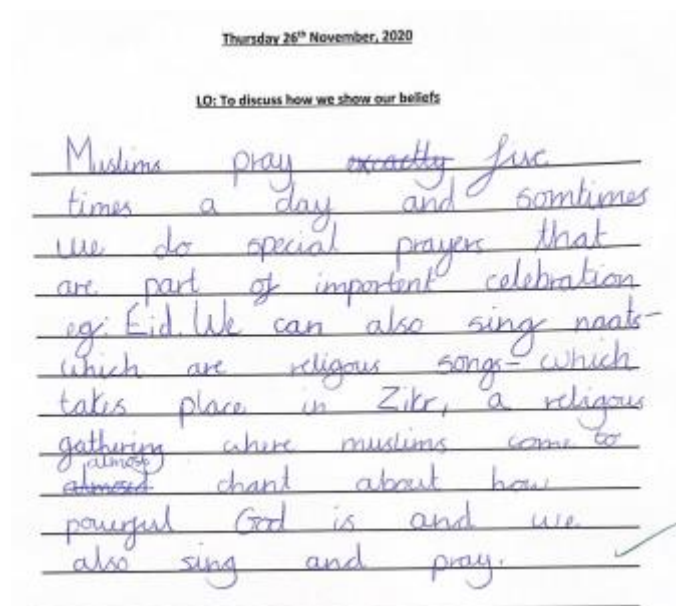 Thursday 26th November, 2020
LO: To discuss how we show our beliefs
Muslims pray exractly five
times a day and somtimes
we do special prayers that
are part of importent celebration
eg: Eid. We can also sing naats-
which are religous songs- which
takes place in Zikr, a religous
gathering where muslims come to
almost
almosed chant about how
powerful God is and we
also sing and pray.